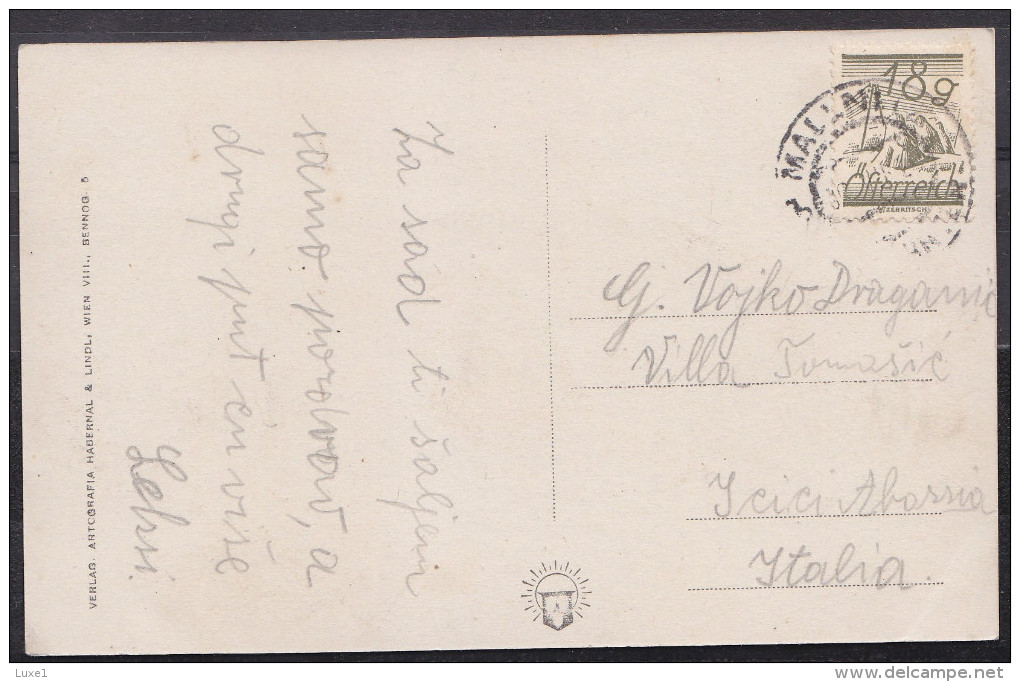 Za sad ti šaljem
samo pozdrav, a
drugi put ću više
VERLAG. ARTOGRAFIA HABERNAL & LINDL, WIEN VIII., BENNOG. 5
18g
Österreich
MALLNI
G. Vojko Draganić
Villa Tomašić
Icici Abazzia
Italia.
Luxe1
delcampe.net